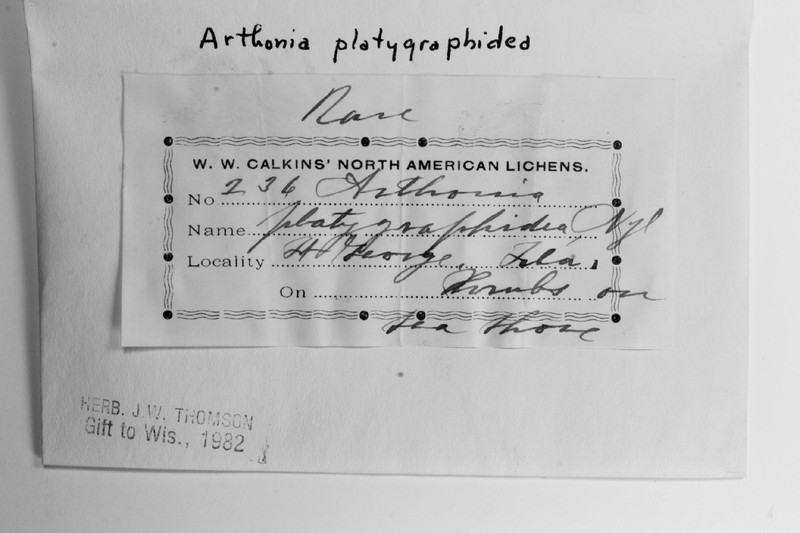 Arthonia platygraphidea
Rare
W. W. CALKINS' NORTH AMERICAN LICHENS.
No 236 Arthonia
Name platygraphidea Nyl
Locality Ft George, Fla,
On Shrubs on
sea shore
HERB. J.W. THOMSON
Gift to Wis., 1982